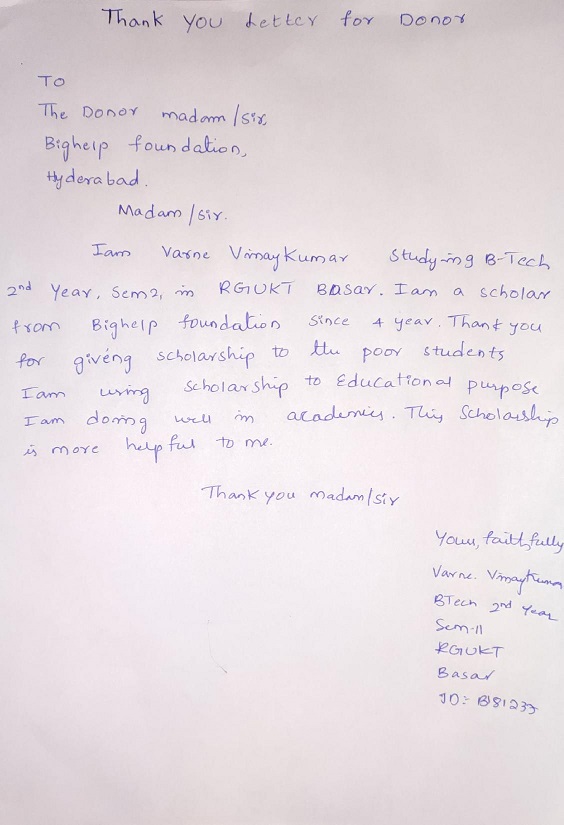 Thank you Letter for Donor
To
The Donor madam/sir,
Bighelp foundation,
Hyderabad.
Madam/sir.
Iam Varne Vinaykumar Studying B-Tech
2nd Year, Sem2, in RGUKT Basar. Iam a scholar
from Bighelp foundation since 4 year. Thank you
for giving scholarship to the poor students
Iam using scholarship to Educational purpose
Iam doing well in academics. This Scholarship
is more helpful to me.
Thank you madam/sir
Yours faithfully
Varne. Vinaykumar
BTech 2nd Year
Sem-II
RGUKT
Basar
ID:- B181235